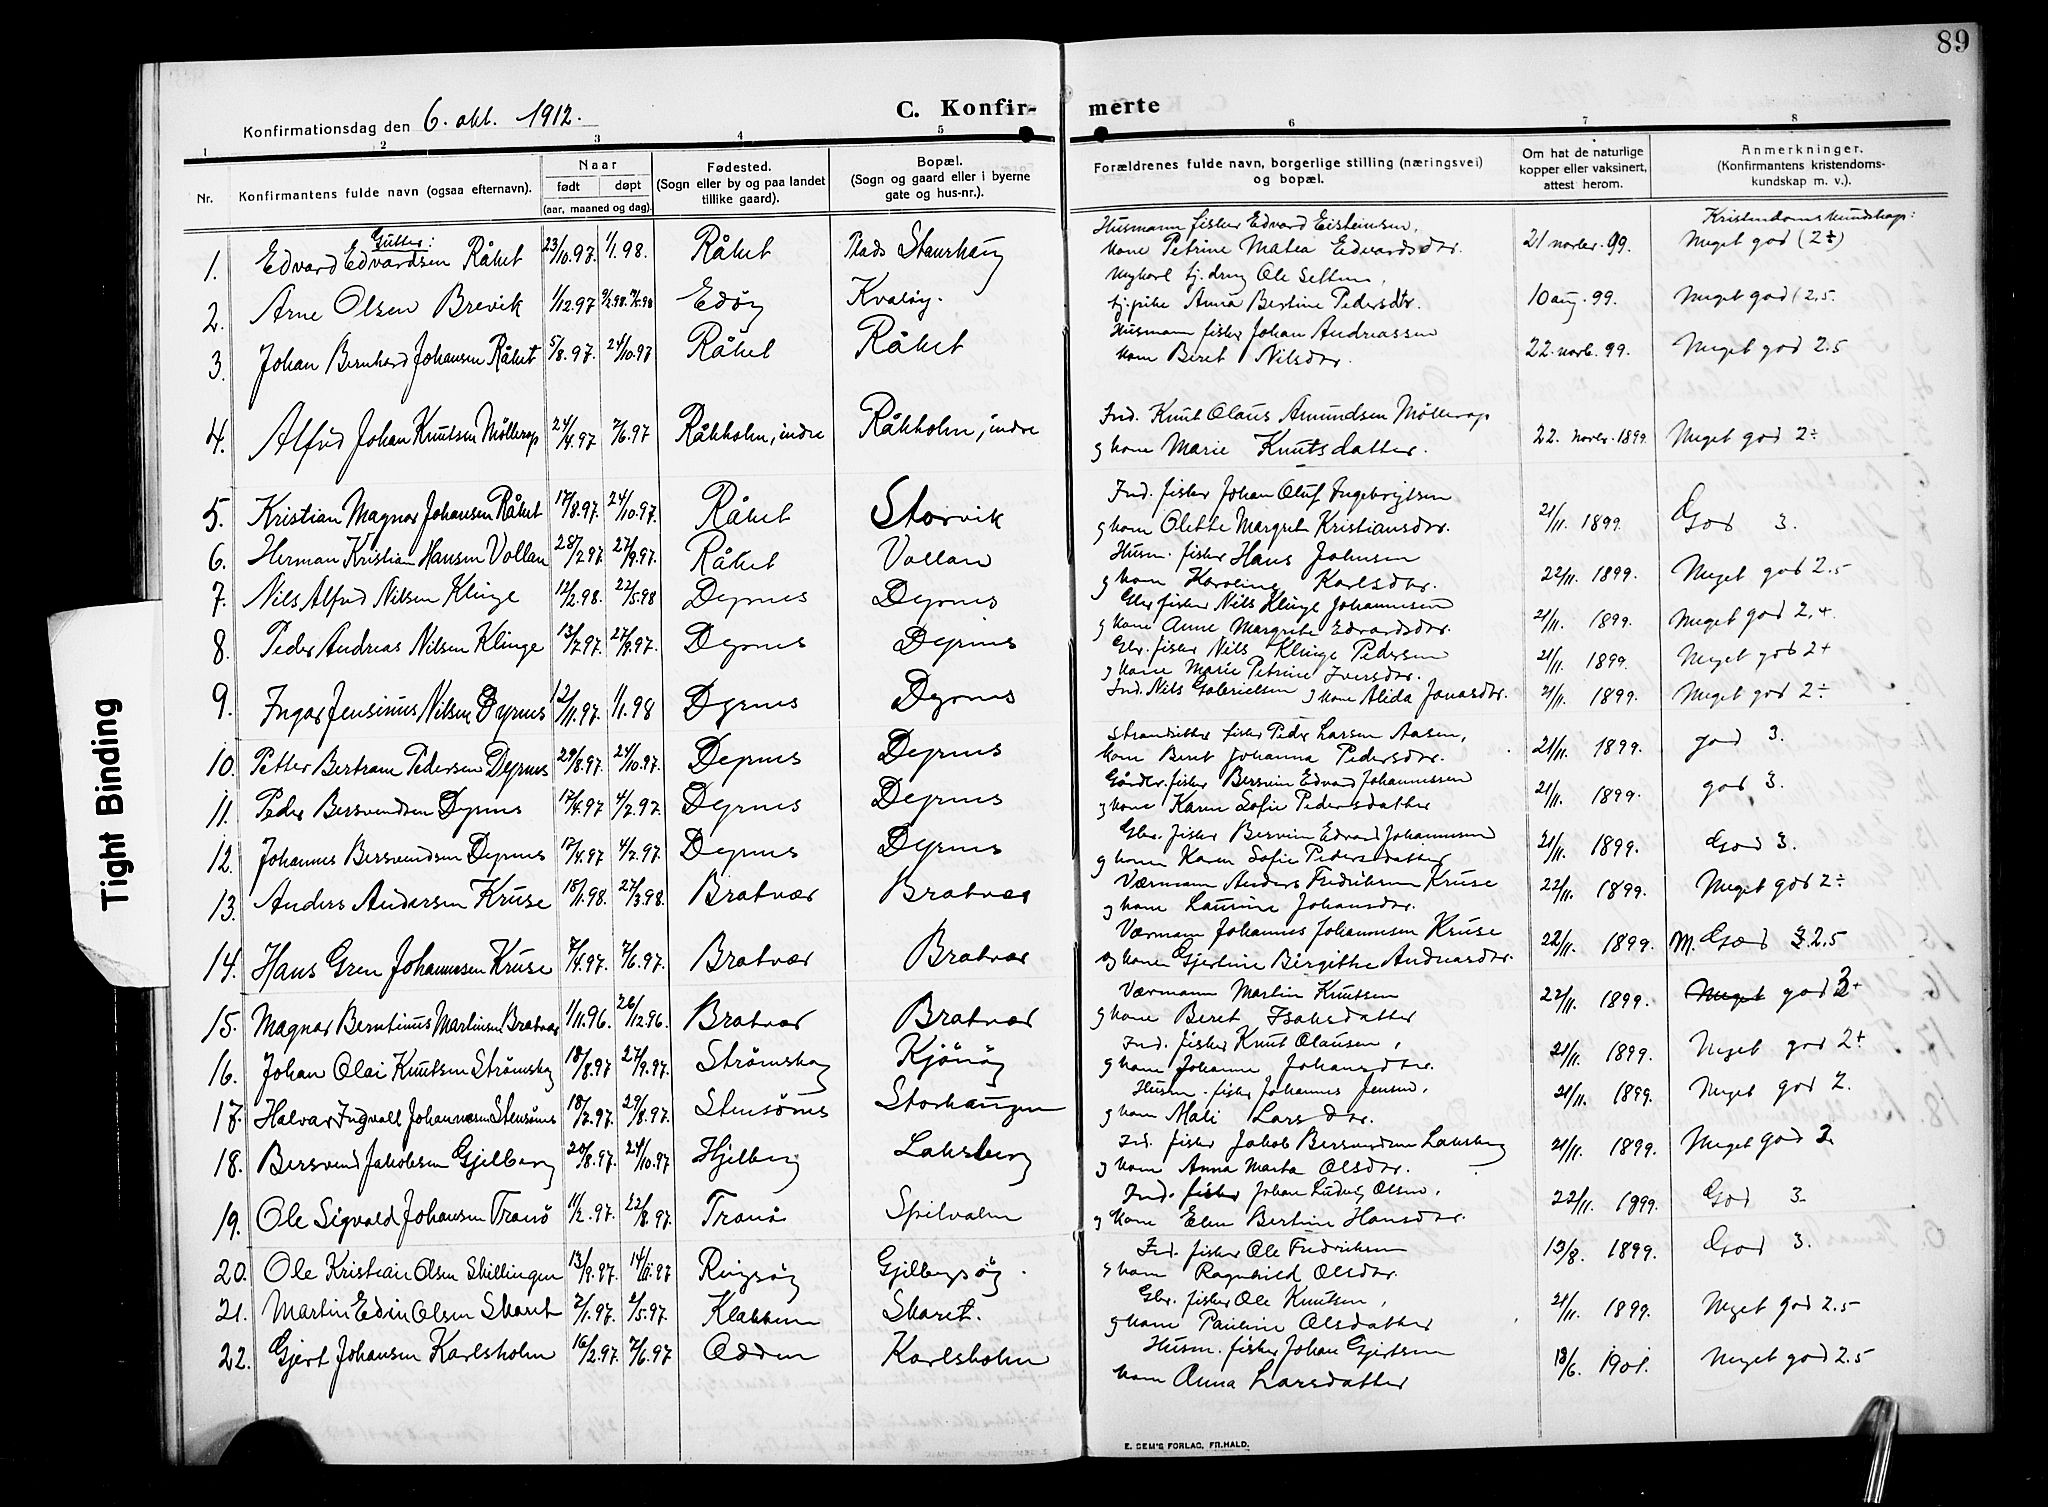 89
Konfirmationsdag den 6. okt. 1912.
C. Konfirmerte
1 2 3 4 5 6 7 8
Nr.
Konfirmantens fulde navn (ogsaa efternavn).
Naar
født døpt
(aar, maaned og dag).
Fødested.
(Sogn eller by og paa landet
tillike gaard).
Bopæl.
(Sogn og gaard eller i byerne
gate og hus-nr.).
Forældrenes fulde navn, borgerlige stilling (næringsvei)
og bopæl.
Om hat de naturlige
kopper eller vaksinert,
attest herom.
Anmerkninger.
(Konfirmantens kristendoms-
kundskap m. v.).
Gutter:
Kristendomskundskap:
1. Edvard Edvardsen Råket 23/10.97. 1/1.98. Råket Plads Staurhaug Husmann fisker Edvard Eisteinsen,
kone Petrine Malea Edvardsdtr. 21 novbr. 99. Meget god (2÷)
2. Arne Olsen Brevik 1/12.97. Edøy Kvaløy. Ungkarl tj. dreng Ole
tj. pike Anna Bertine Pedersdtr. 10 aug. 99. Meget god (2.5.
3. Johan Bernhard Johansen Råket 5/8.97. 24/10.97 Råket Råket Husmann fisker Johan Andreassen
kone Beret Nilsdtr. 22. novb. 99. Meget god 2.5
4. Alfred Johan Knutsen Möllerop 24/4.97 7/6.97 Råkholm, indre Råkholm, indre Ind. Knut Olaus Amundsen Möllerop
og kone Marie Knutsdatter. 22. novbr. 1899. Meget god 2÷
5. Kristian Magnar Johansen Råket 17/8.97. 24/10.97. Råket Storvik Ind. fisker Johan Oluf Ingebrigtsen
og kone Olette Margret Kristiansdtr. 21/11. 1899. God 3.
6. Herman Kristian Hansen Vollan 28/7.97. 27/9.97. Råket Vollan Husm. fisker Hans Johnsen
og kone Karoline Karlsdtr. 22/11. 1899. Meget god 2.5
7. Nils Alfred Nilsen Klinge 12/2.98. 22/5.98 Dyrnes Dyrnes Gbr. fisker Nils Klinge Johannesen
og kone Anne Margrete Edvardsdtr. 21/11. 1899. Meget god 2.+
8. Peder Andreas Nilsen Klinge 13/7.97. 27/9.97. Dyrnes Dyrnes Gbr. fisker Nils Klinge Pedersen
og kone Marie Petrine Iversdtr. 21/11. 1899. Meget god 2+
9. Ingar Jensinius Nilsen Dyrnes 12/11.97. 1/1.98 Dyrnes Dyrnes Ind. Nils Gabrielsen og kone Alida Jonasdtr. 21/11. 1899. Meget god 2÷
10. Petter Bertram Pedersen Dyrnes 29/8.97. 24/10.97. Dyrnes Dyrnes Strandsitter fisker Peder Larsen Aasen,
kone Beret Johanna Pedersdtr. 21/11. 1899. god 3.
11. Peder Bersvendsen Dyrnes 17/4.97 4/7.97. Dyrnes Dyrnes Gårdbr. fisker Bersvein Edvard Johannessen
og kone Karen Sofie Pedersdatter 21/11. 1899. god 3.
12. Johannes Bersvendsen Dyrnes 17/4.97 4/7.97. Dyrnes Dyrnes Gbr. fisker Bersvein Edvard Johannesen
og kone Karen Sofie Pedersdatter 21/11. 1899. God 3.
13. Anders Andersen Kruse 18/1.98. 27/3.98. Bratvær Bratvær Værmann Anders Fredriksen Kruse
og kone Laurine Johansdtr. 22/11. 1899. Meget god 2÷
14. Hans Gren Johannesen Kruse 7/4.97. 7/6.97. Bratvær Bratvær Værmann Johannes Johannesen Kruse
og kone Gjertine Birgithe Andreasdtr. 22/11. 1899. M. God 2.5
15. Magnar Berntinus Martinsen Bratvær 1/11.96. 26/12.96. Bratvær Bratvær Værmann Martin Knutsen
og kone Beret Isaksdatter 22/11. 1899. Meget god 3+
16. Johan Olai Knutsen Strømskag 18/8.97 27/9.97. Strømskag Kjønøy Ind. fisker Knut Olausen,
og kone Johanne Johansdtr. 21/11. 1899. Meget god 2+
17. Halvar Ingvall Johannesen Stensönes 18/7.97. 29/8.97. Stensönes Storhaugen Husm. fisker Johannes Jensen,
og kone Mali Larsdtr. 21/11. 1899. Meget god 2.
18. Bersvend Jakobsen Gjelberg 20/8.97. 24/10.97. Hjelberg Laksberg Ind. fisker Jakob Bersvendsen Laksberg
og kone Anna Marta Olsdtr. 21/11. 1899. Meget god 2.
19. Ole Sigvald Johansen Tranö 11/2.97. 22/8.97. Tranö Spilvalen Ind. fisker Johan Ludvig Olsen,
og kone Elen Bertine Hansdtr. 22/11. 1899. God 3.
20. Ole Kristian Olsen Skillingen 13/9.97. 14/11.97 Ringsøy Gjelbergsøy. Ind. fisker Ole Fredriksen
og kone Ragnhild Olsdtr. 13/8. 1899. God 3.
21. Martin Edin Olsen Skaret 2/1.97. 2/5.97. Klakken Skaret. Gbr. fisker Ole Knutsen,
og kone Pauline Olsdatter 21/11. 1899. Meget god 2.5
22. Gjert Johansen Karlsholm 16/2.97. 7/6.97 Odden Karlsholm Husm. fisker Johan Gjertsen
kone Anna Larsdatter 18/6. 1901. Meget god 2.5
E. SEM'S FORLAG, FR.HALD.
Tight Binding